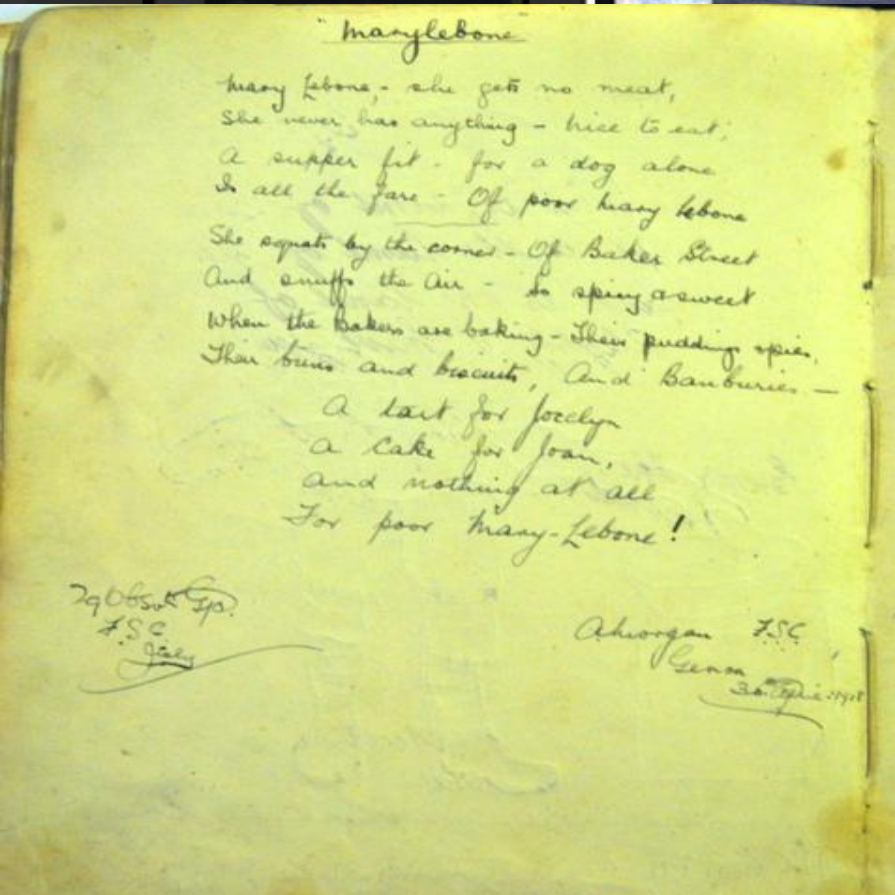 "Marylebone"
Mary Lebone,- she gets no meat,
She never has anything - Nice to eat;
A supper fit - for a dog alone
Is all the fare - Of poor Mary Lebone
She squats by the corner - Of Baker Street
And snuffs the air - So spicy & sweet
When the Bakers are baking - Their puddings & pies,
Their buns and biscuits, And Banburies -
A tart for Jocelyn
A cake for Joan,
And nothing at all
For poor Mary-Lebone!
29 Obson Gp.
F.S.C
Italy
A Morgan F.S.C.
Genoa
30 April 1918